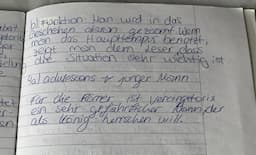 b) Funktion: Man wird in das
Geschehen davon gezoomt. Wenn
man das Haupttempus benutzt,
zeigt man dem Leser, dass
die Situation sehr wichtig ist
4a) adulescens → junger Mann
Für die Römer ist Vercingetorix
ein sehr gefährlicher Mann, der
als König herrschen will.